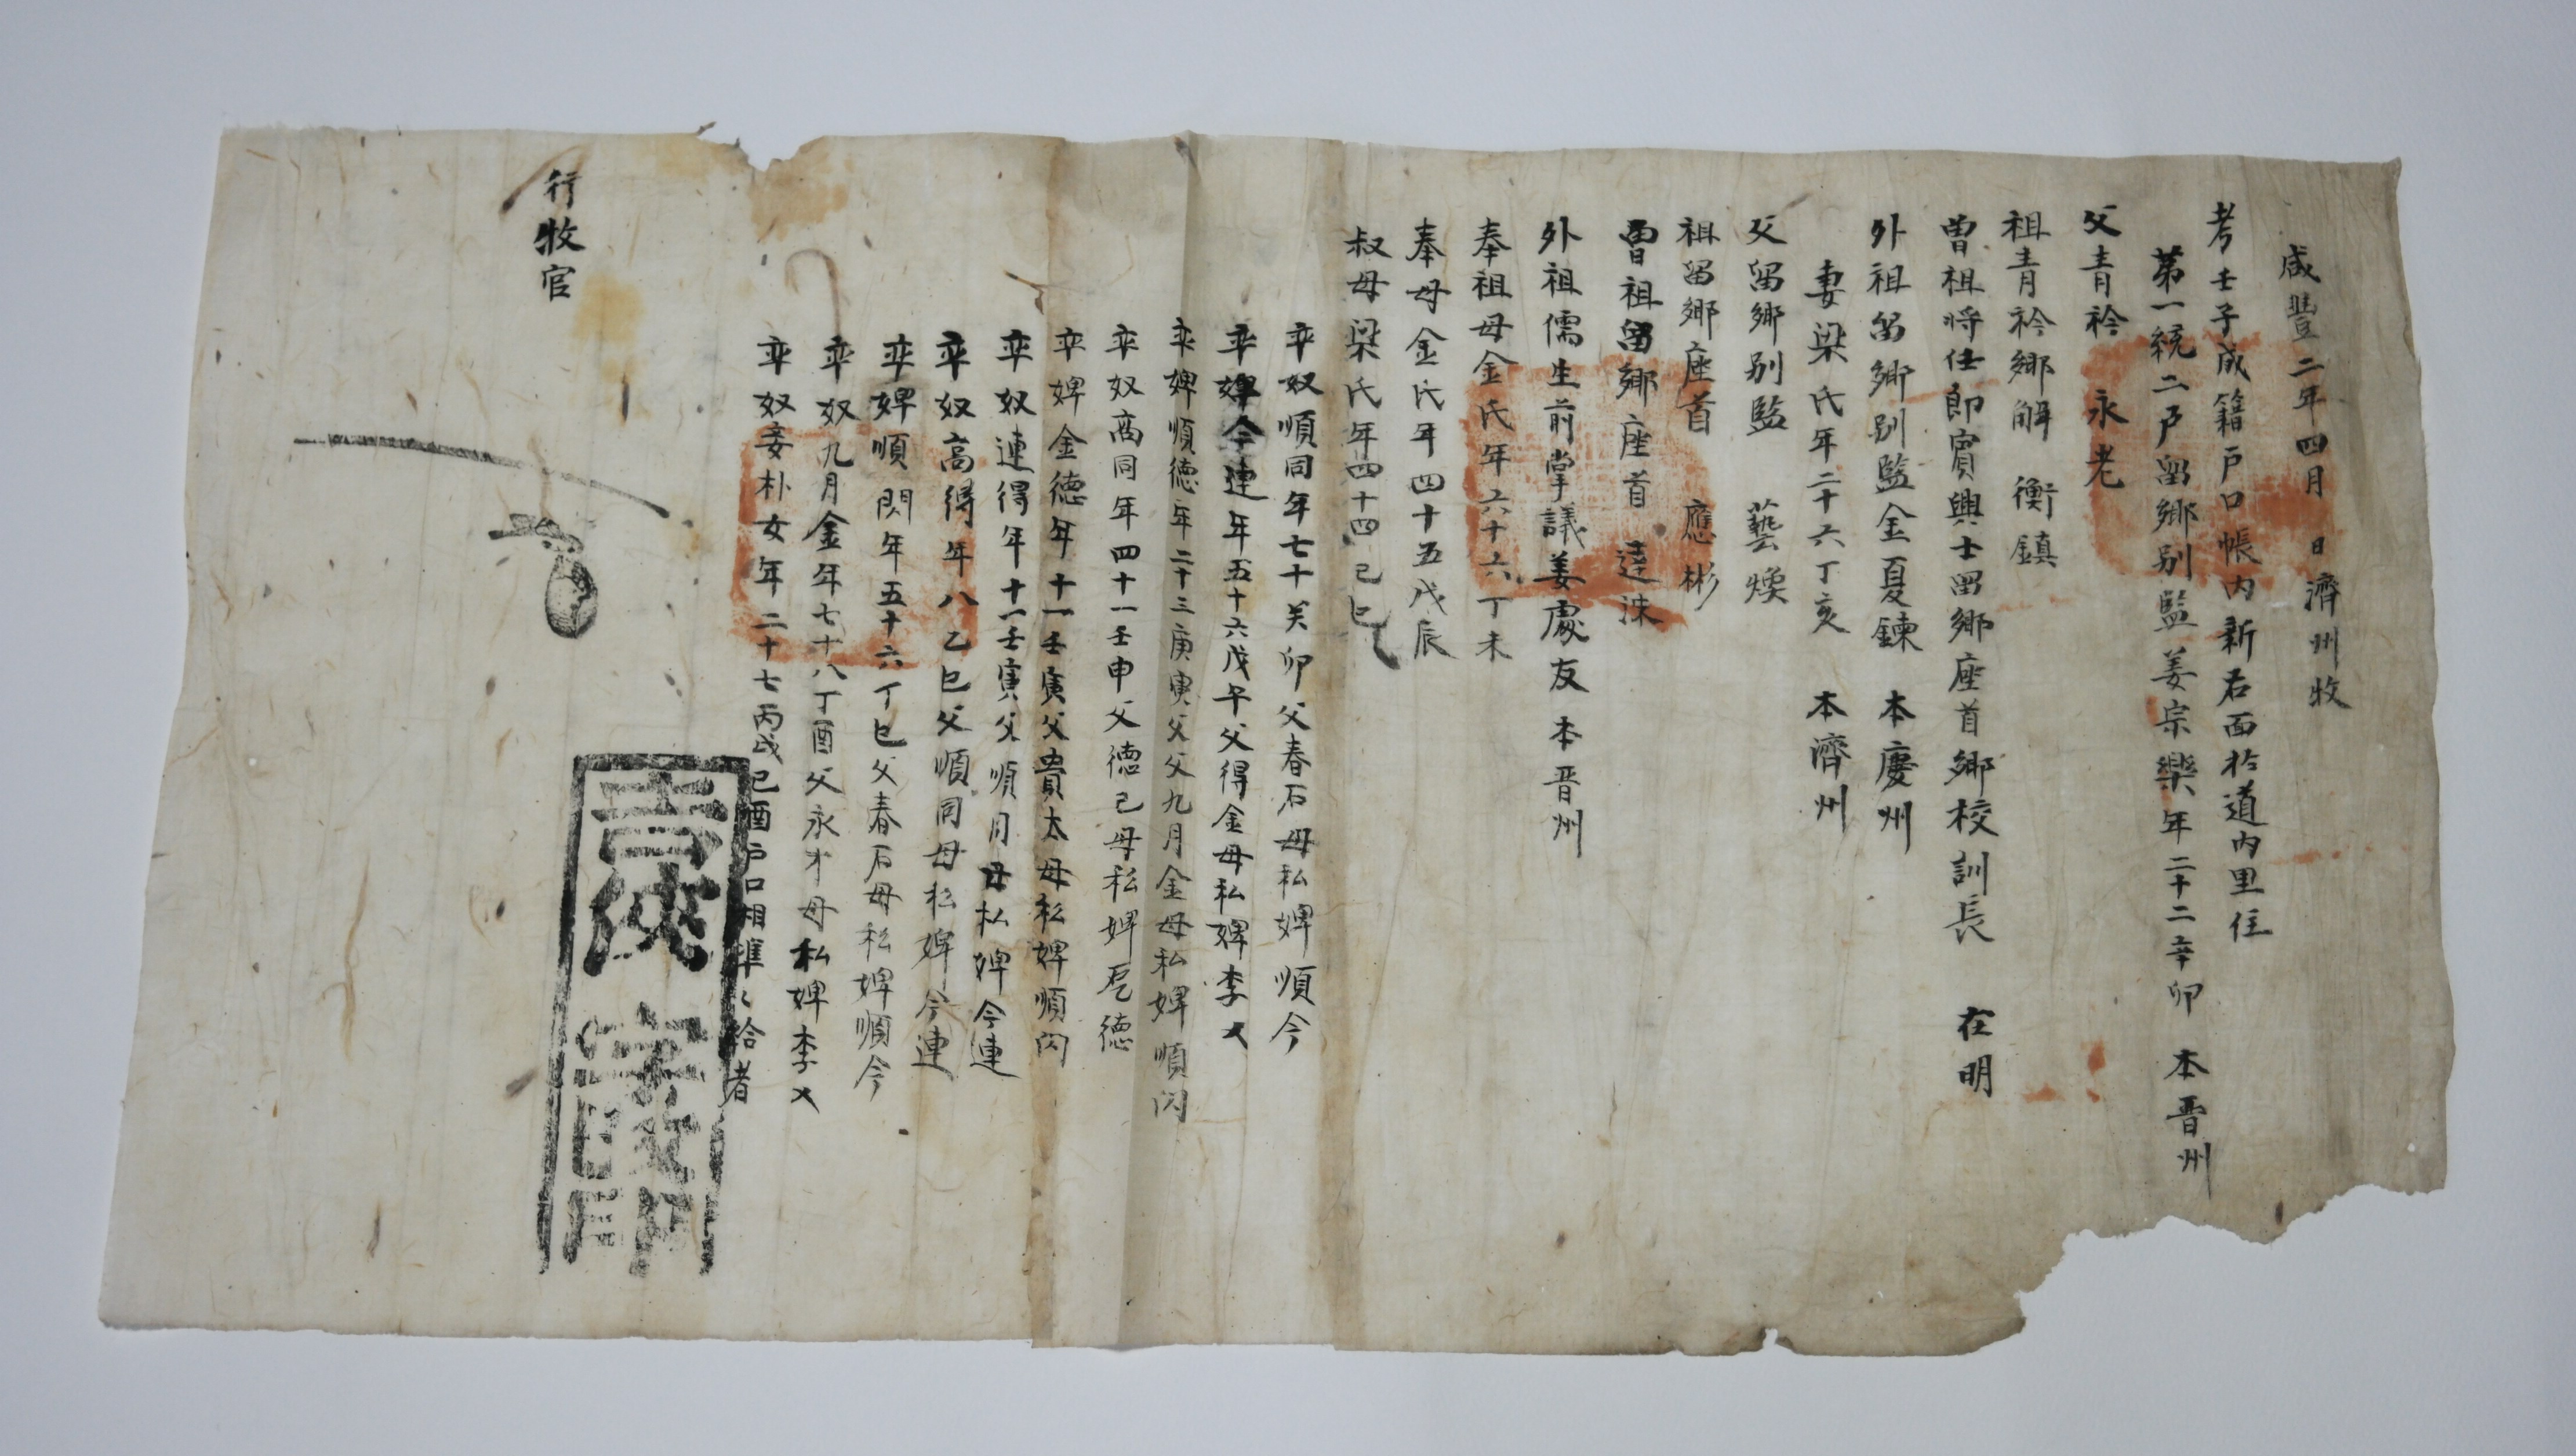 咸豐二年四月 日濟州牧
考壬子成籍戶口帳內新右面於道內里住
第一統二戶留鄉別監姜宗樂年二十二辛卯 本晋州
父青衿 永老
祖青衿鄉解 衡鎮
曽祖將仕郎賓興士留鄉座首鄉校訓長 在明
外祖留鄉別監金夏鍊 本慶州
妻梁氏年二十六丁亥 本濟州
父留鄉別監 藝煥
祖留鄉座首 應彬
曽祖留鄉座首 達洙
外祖儒生前掌議姜處友 本晋州
奉祖母金氏年六十六丁未
奉母金氏年四十五戊辰
叔母梁氏年四十四己巳
率奴順同年七十癸卯父春石母私婢順今
率婢今連年五十六戊午父得金母私婢李乂
率婢順德年二十三庚寅父父九月金母私婢順闪
率奴高同年四十一壬申父德己母私婢德
率婢金德年十一壬寅父貴太母私婢順闪
率奴連得年十一壬寅父順月母私婢今連
率奴高得年八乙巳父順同母私婢今連
率婢順閃年五十六丁巳父春石母私婢順今
率奴九月金年七十八丁酉父永才母私婢李乂
率奴妾朴女年二十七丙戌己酉戶口相準々給者
行牧官